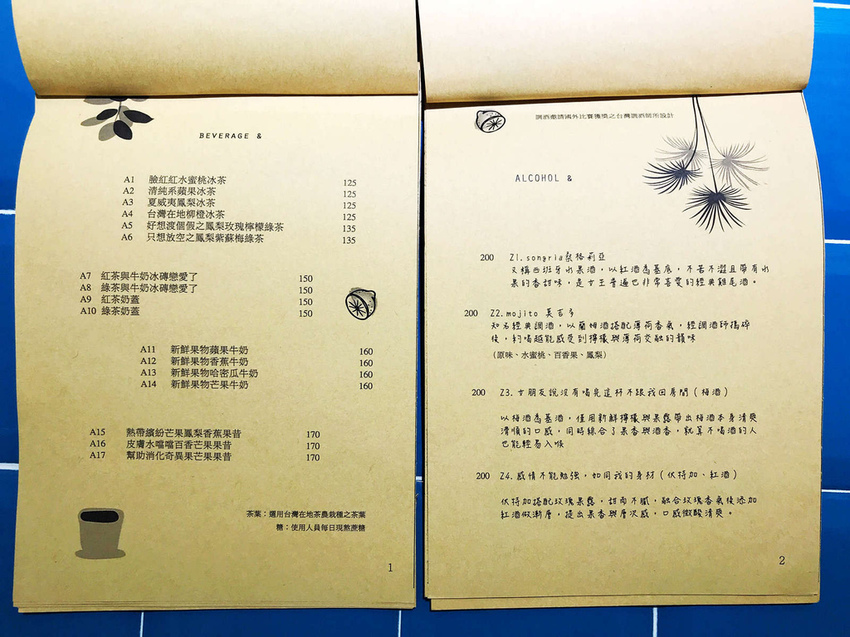 BEVERAGE &
A1 臉紅紅水蜜桃冰茶 125
A2 清純系蘋果冰茶 125
A3 夏威夷鳳梨冰茶 125
A4 台灣在地柳橙冰茶 125
A5 好想渡個假之鳳梨玫瑰檸檬綠茶 135
A6 只想放空之鳳梨紫蘇梅綠茶 135
A7 紅茶與牛奶冰磚戀愛了 150
A8 綠茶與牛奶冰磚戀愛了 150
A9 紅茶奶蓋 150
A10 綠茶奶蓋 150
A11 新鮮果物蘋果牛奶 160
A12 新鮮果物香蕉牛奶 160
A13 新鮮果物哈密瓜牛奶 160
A14 新鮮果物芒果牛奶 160
A15 熱帶繽紛芒果鳳梨香蕉果昔 170
A16 皮膚水噹噹百香芒果果昔 170
A17 幫助消化奇異果芒果果昔 170
茶葉：選用台灣在地茶農栽種之茶葉
糖：使用人員每日現熬蔗糖
1
調酒邀請國外比賽獲獎之台灣調酒師所設計
ALCOHOL &
200 Z1.songria桑格莉亞
又稱西班牙水果酒，以紅酒為基底，不苦不澀且帶有水
果的香甜味，是女王普遍也非常喜愛的經典雞尾酒。
200 Z2.mojito 莫吉多
知名經典調酒，以蘭姆酒搭配薄荷香氣，經調酒師搗碎
後，約喝越能感受到檸檬與薄荷交融的韻味
（原味、水蜜桃、百香果、鳳梨）
200 Z3.女朋友說沒有喝完這杯不跟我回房間（梅酒）
以梅酒為基酒，使用新鮮檸檬與果露帶出梅酒本身清爽
清順的口感，同時綜合了果香與酒香，就算不喝酒的人
也能輕易入喉
200 Z4.感情不能勉強，如同我的身材（伏特加、紅酒）
伏特加搭配玫瑰果露，甜而不膩，融合玫瑰香氣後添加
紅酒做漸層，提出果香與層次感，口感微酸清爽。
2